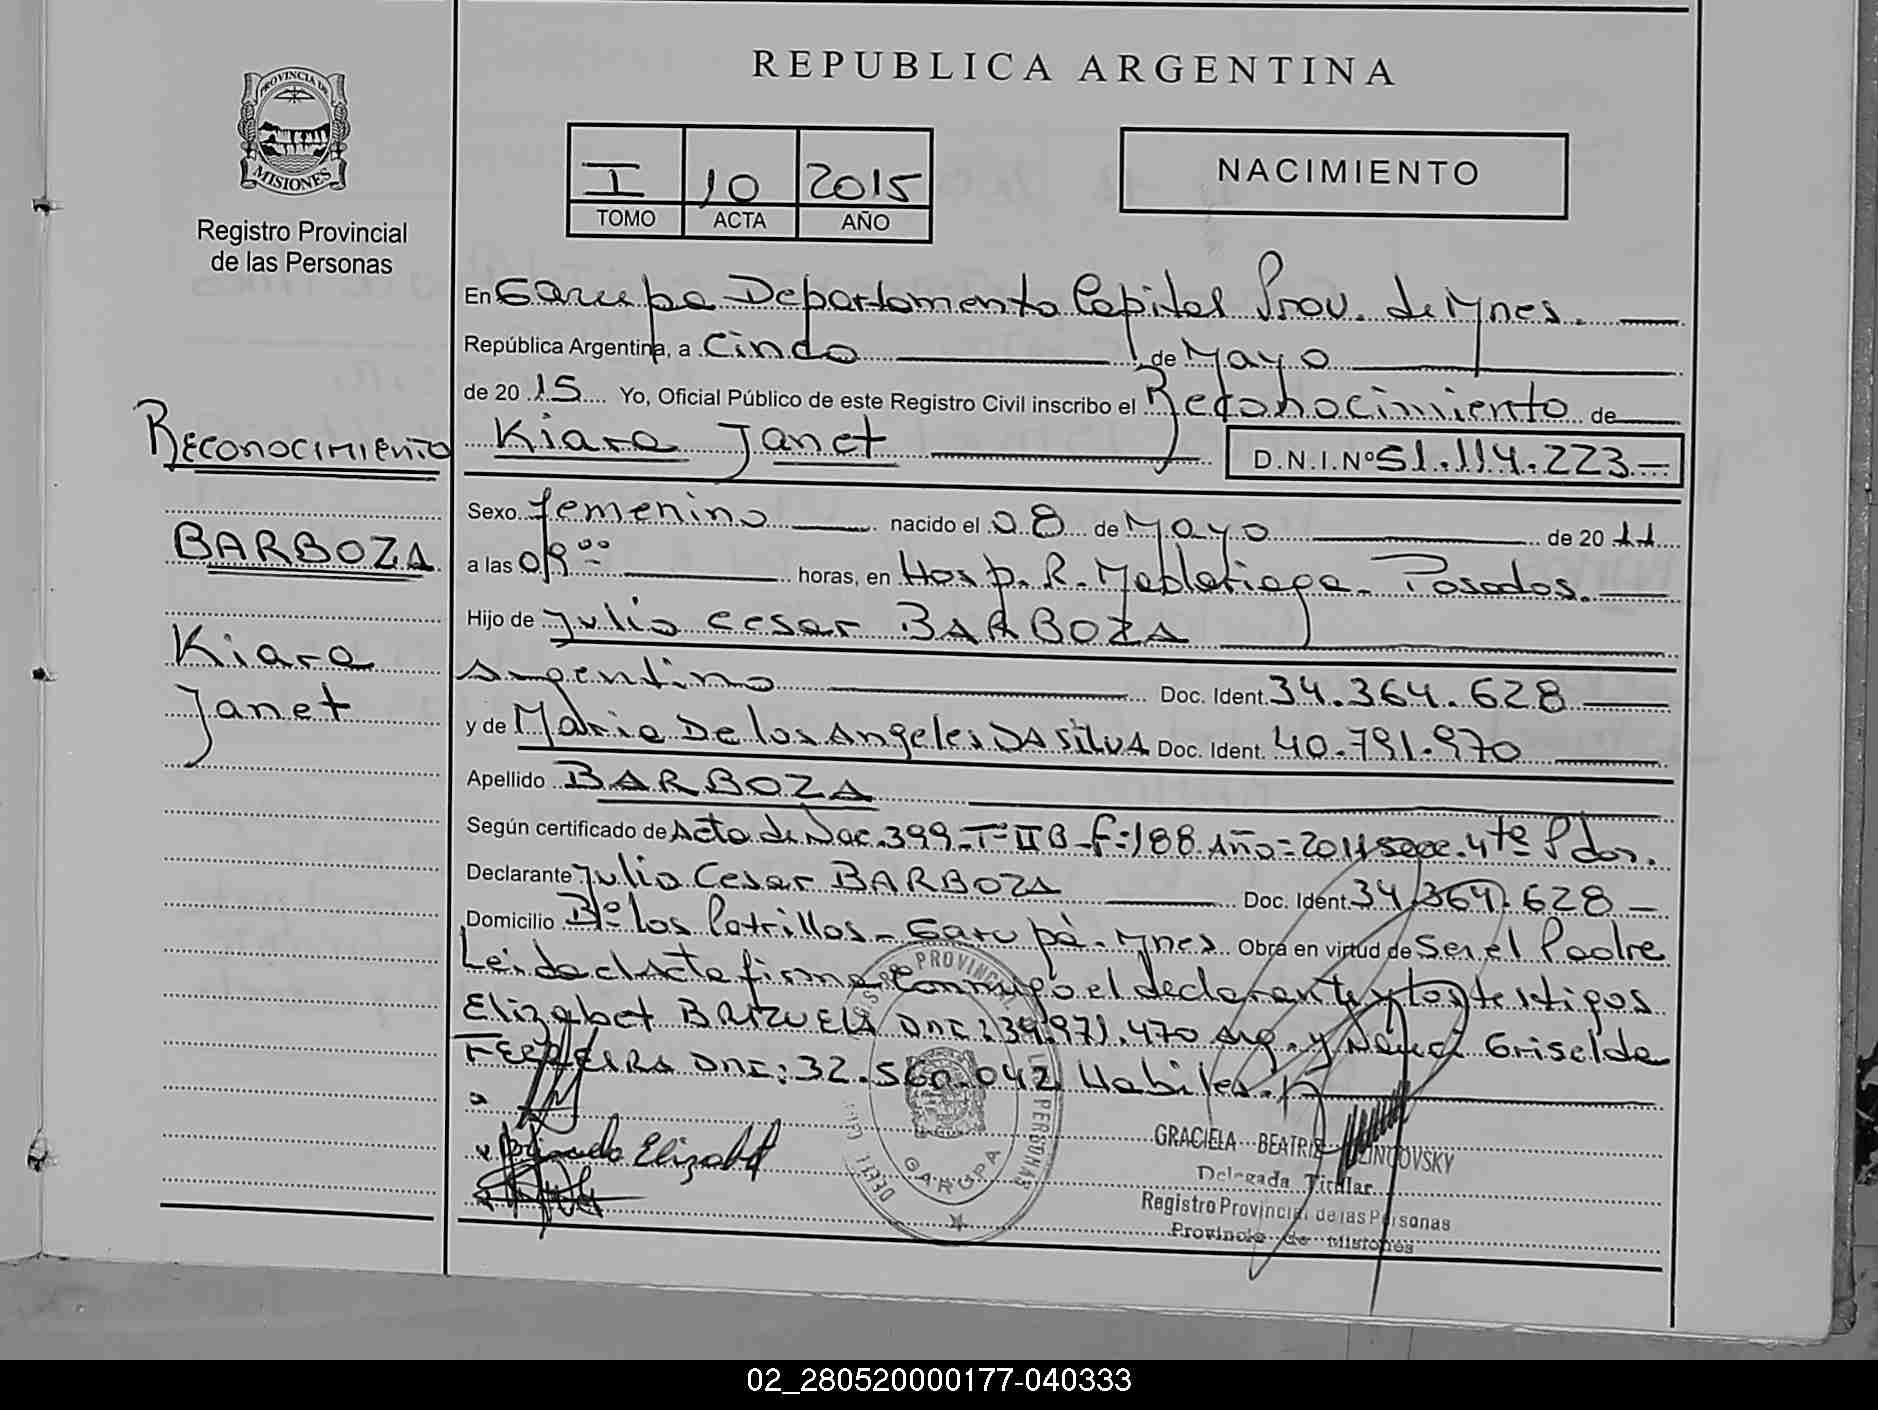 PROVINCIA DE
MISIONES
Registro Provincial
de las Personas
Reconocimiento
BARBOZA
Kiara
Janet
REPUBLICA ARGENTINA
I 10 2015
TOMO ACTA AÑO
NACIMIENTO
En Garupa Departamento Capital Prov. de Mnes.
República Argentina, a Cinco de Mayo
de 2015 Yo, Oficial Público de este Registro Civil inscribo el Reconocimiento de
Kiara Janet D.N.I.Nº 51.114.223.-
Sexo femenino nacido el 08 de Mayo de 2011
a las horas, en Hosp. R. Madariaga - Posadas.
Hijo de Julio Cesar BARBOZA
Argentino Doc. Ident. 34.364.628
y de Maria De los Angeles DA SILVA Doc. Ident. 40.791.970
Apellido BARBOZA
Según certificado de Acta de Nac. 399-Tº IIB-F:188 Año=2011 secc. 4ta Pdas.
Declarante Julio Cesar BARBOZA Doc. Ident. 34.364.628-
Domicilio Bº los Potrillos - Garupá - Mnes Obra en virtud de Ser el Padre
Leida el Acta firma conmigo el declarante y los testigos
Elizabet BRIZUELA DNI: 39.971.470 Arg. y Griselda
FERREIRA DNI: 32.560.042 Habiles.
Elizabet
GARUPA
GRACIELA BEATRIZ
Delegada Titular
Registro Provincial de las Personas
Provincia de Misiones
02_280520000177-040333